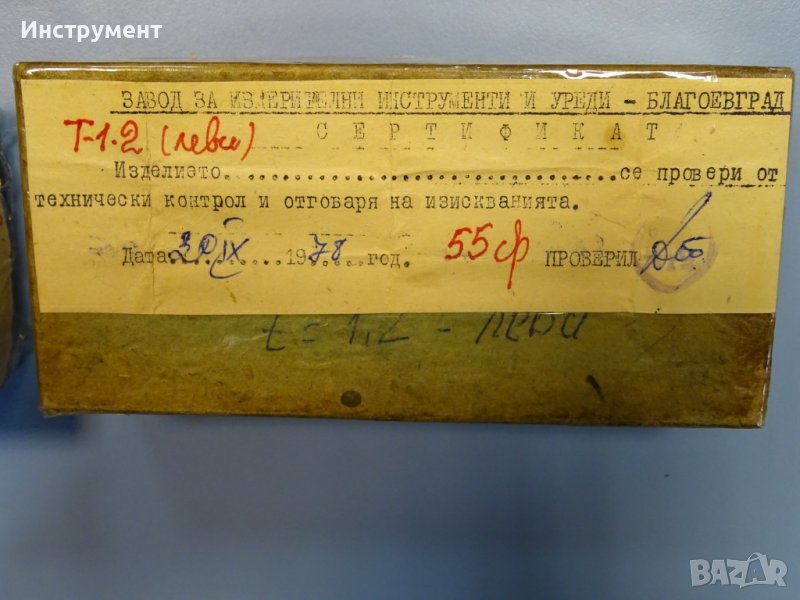 Инструмент
ЗАВОД ЗА ИЗМЕРИТЕЛНИ ИНСТРУМЕНТИ И УРЕДИ - БЛАГОЕВГРАД
Т-1.2 (леви) СЕРТИФИКАТ
Изделието.......................................се провери от
технически контрол и отговаря на изискванията.
Дата 30 IX 1978 год. 55ф ПРОВЕРИЛ
t = 1,2 - лева
BAZAR